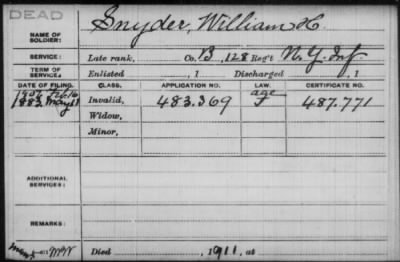 DEAD
NAME OF SOLDIER: Snyder, William H.
SERVICE: Late rank, Co. B, 128 Reg't N. Y. Inf.
TERM OF SERVICE: Enlisted , 1 Discharged , 1
DATE OF FILING. CLASS. APPLICATION NO. LAW. CERTIFICATE NO.
1907 Feb 16 age
1883 May 11 Invalid, 483.369 F 487.771
Widow,
Minor,
ADDITIONAL SERVICES:
REMARKS:
Died , 1911, at